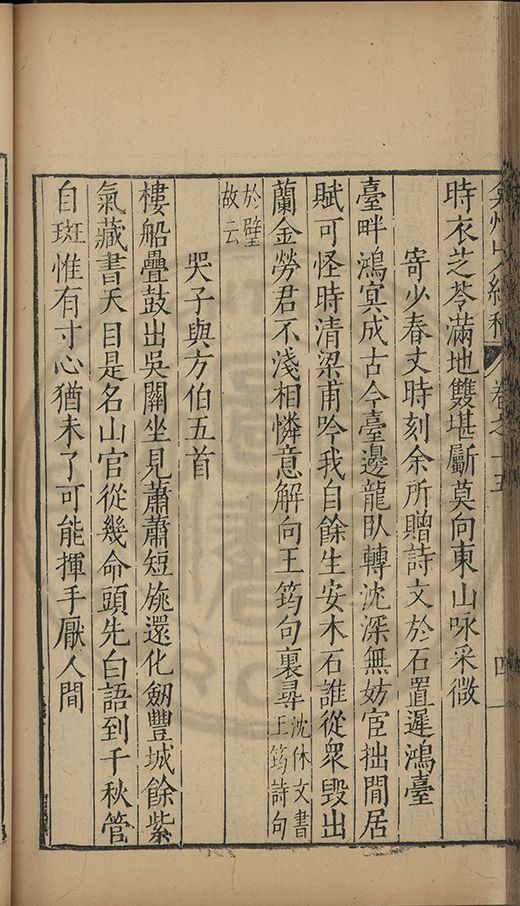 弇州山人續稿 卷之十五 四
時衣芝苓滿地雙堪斸莫向東山咏采薇
寄少春丈時刻余所贈詩文於石置遲鴻臺
臺畔鴻冥成古今臺邊龍臥轉沈深無妨宦拙閒居
賦可怪時清梁甫吟我自餘生安木石誰從衆毀出
蘭金勞君不淺相憐意解向王筠句裏尋沈休文書王筠詩句
於壁故云
哭子與方伯五首
樓船疊鼓出吳關坐見蕭蕭短旐還化劒豐城餘紫
氣藏書天目是名山官從幾命頭先白語到千秋管
自斑惟有寸心猶未了可能揮手厭人間